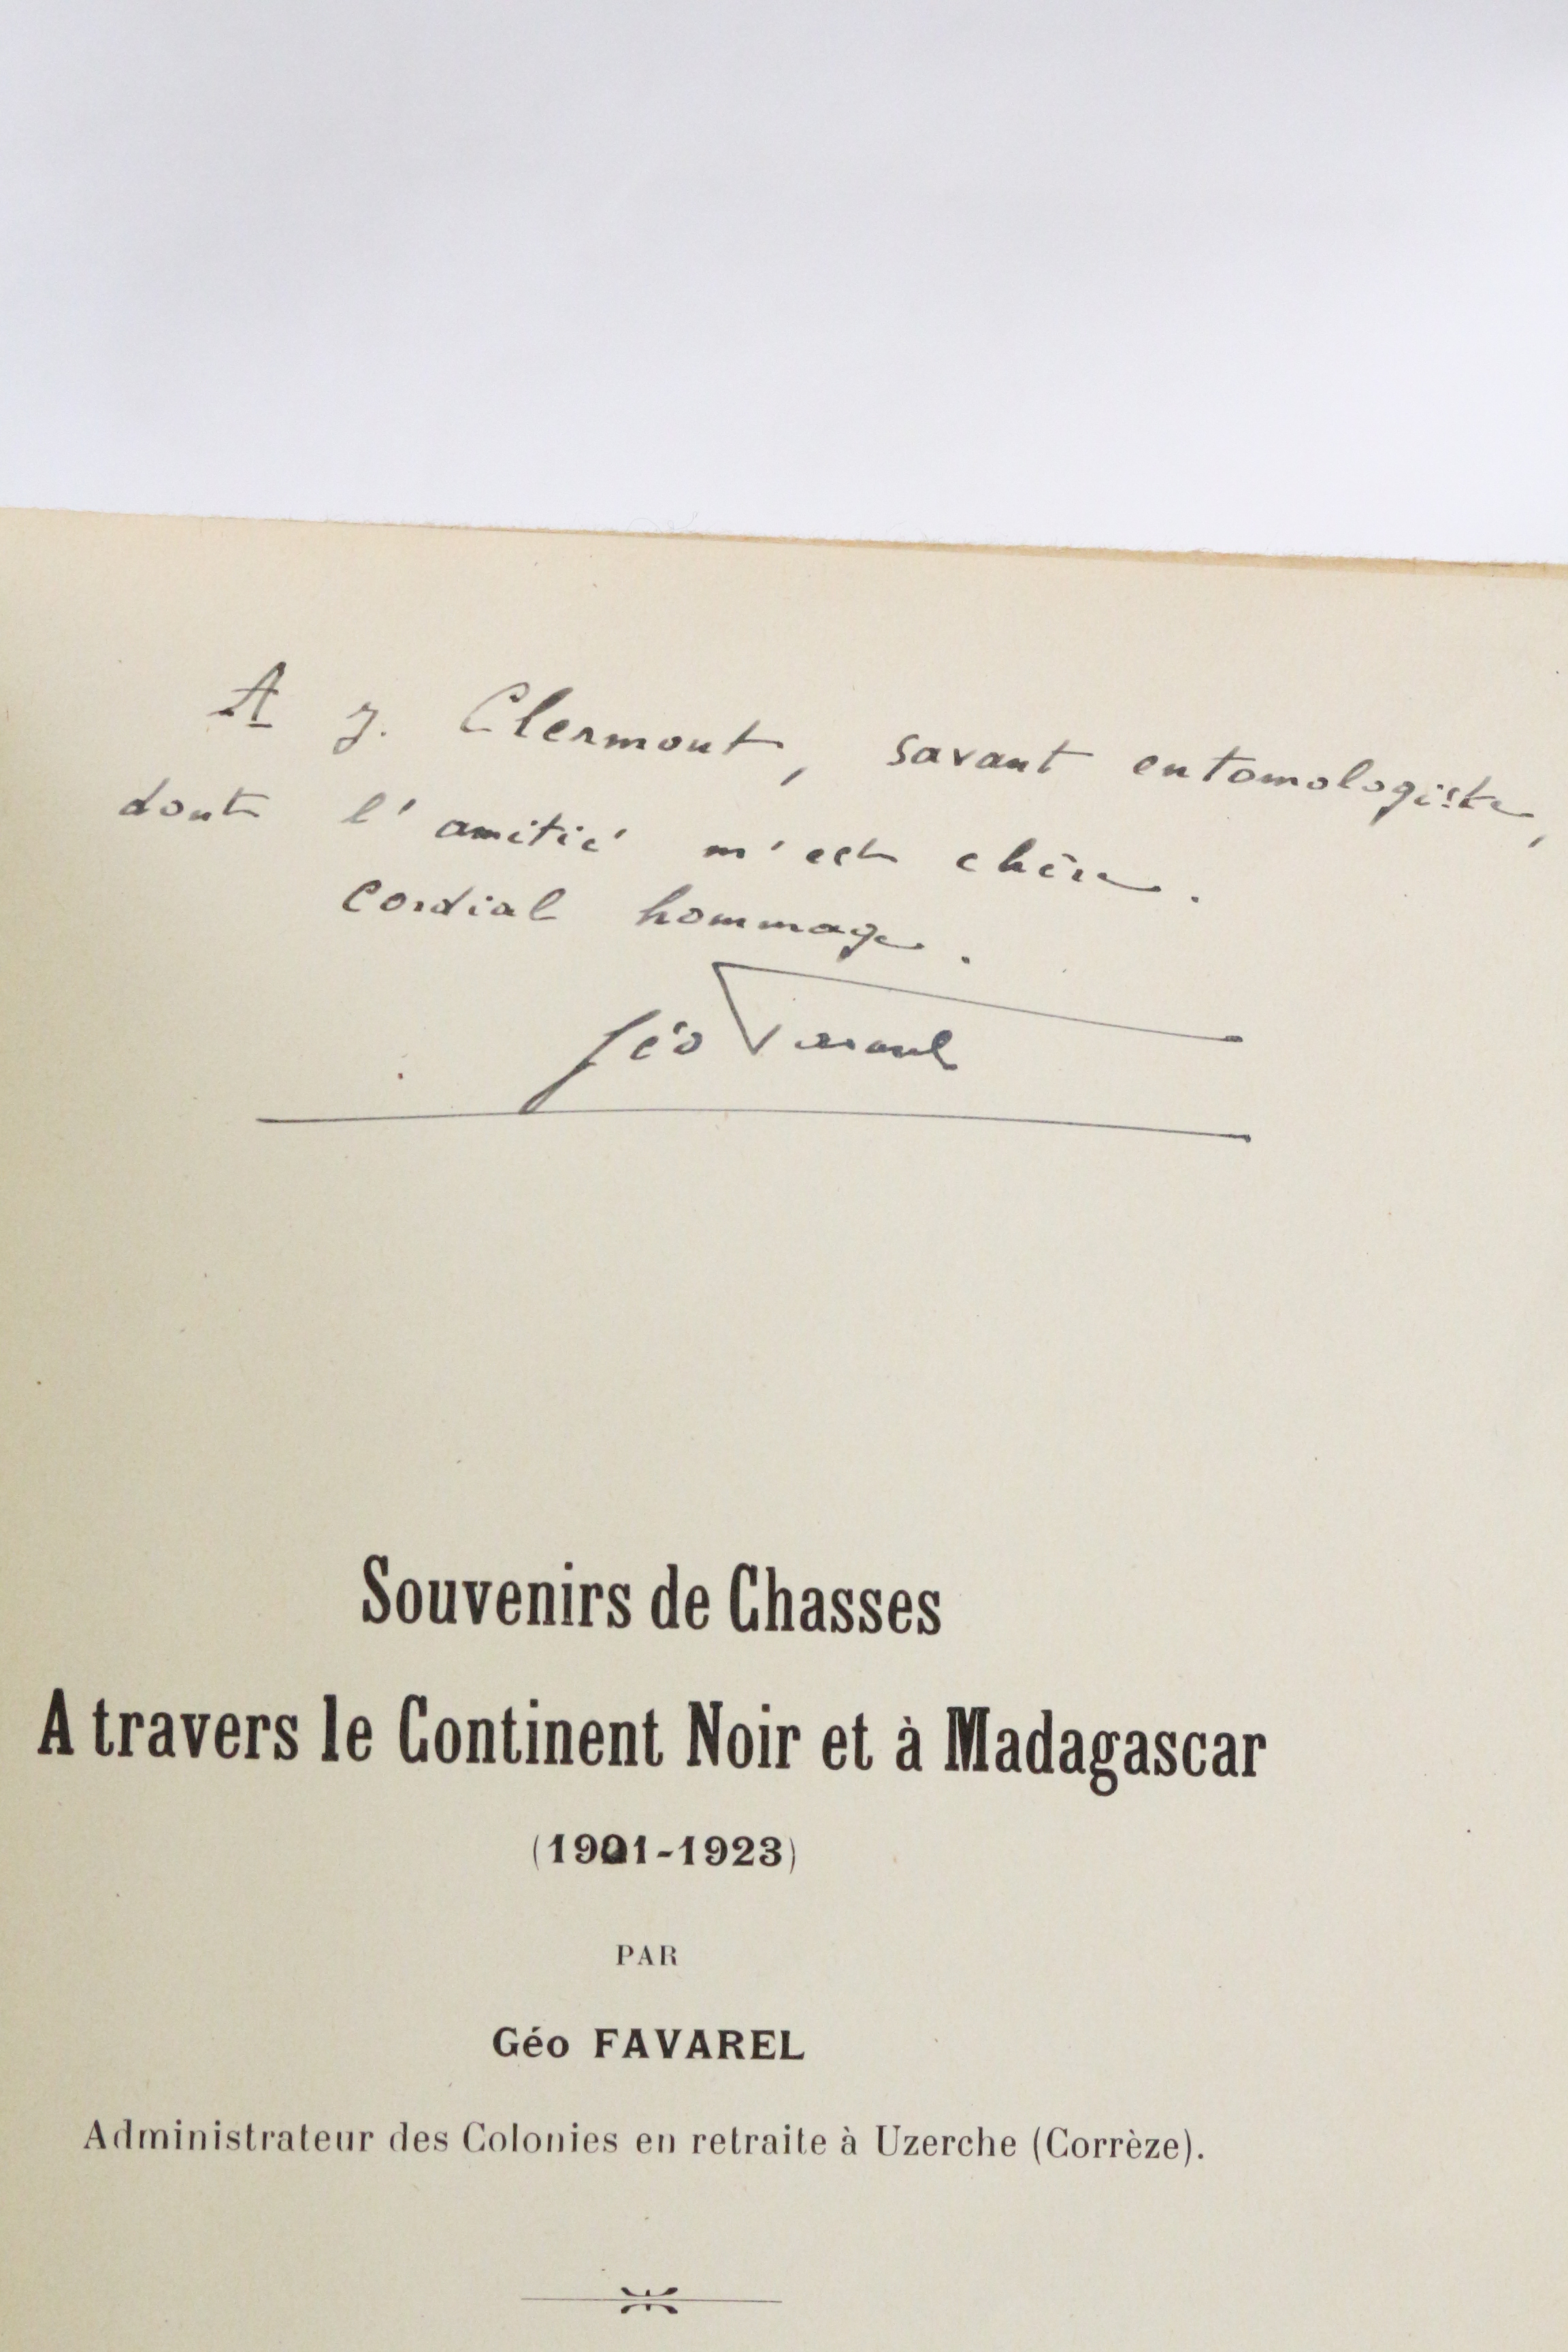 A J. Clermont, savant entomologiste,
dont l'amitié m'est chère.
Cordial hommage.
Géo Favarel
Souvenirs de Chasses
A travers le Continent Noir et à Madagascar
(1901-1923)
PAR
Géo FAVAREL
Administrateur des Colonies en retraite à Uzerche (Corrèze).